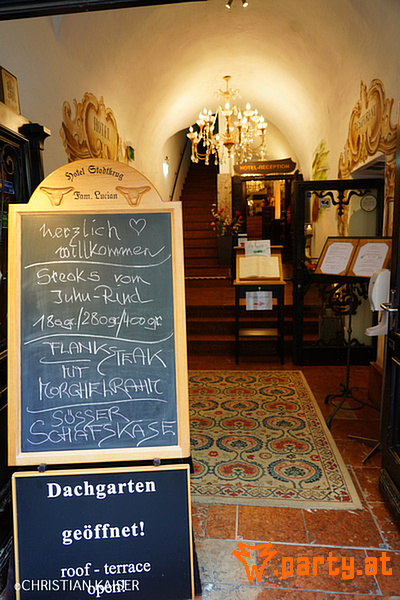 Hotel Stadtkrug
Fam. Lucian
Herzlich ♡
willkommen
Steaks vom
Juhu-Rind
180gr/280gr/400gr
FLANKSTEAK
MIT
MORCHELRAHM
SÜSSER
SCHAFSKÄSE
Dachgarten
geöffnet!
roof - terrace
open!
HOTEL-RECEPTION
©CHRISTIAN KAISER
party.at